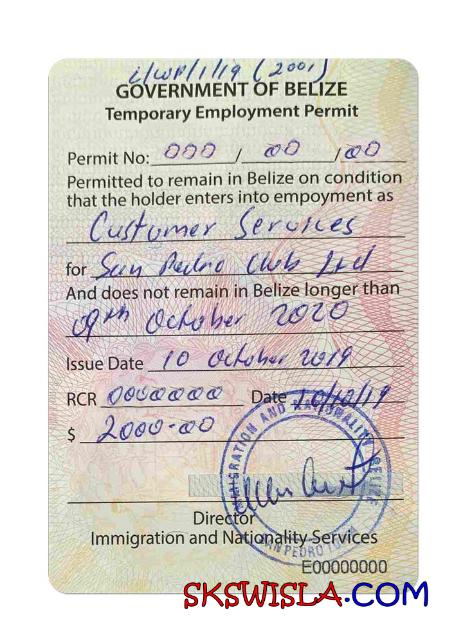 i/WP/1/19 (2001)
GOVERNMENT OF BELIZE
Temporary Employment Permit
Permit No: 000 / 00 / 00
Permitted to remain in Belize on condition
that the holder enters into empoyment as
Customer Services
for San Pedro Club Ltd
And does not remain in Belize longer than
09th October 2020
Issue Date 10 October 2019
RCR 0000000 Date 10/10/19
$ 2000-00
IMMIGRATION AND NATIONALITY BELIZE
SAN PEDRO TOWN
Director
Immigration and Nationality Services
E00000000
SKSWISLA.COM